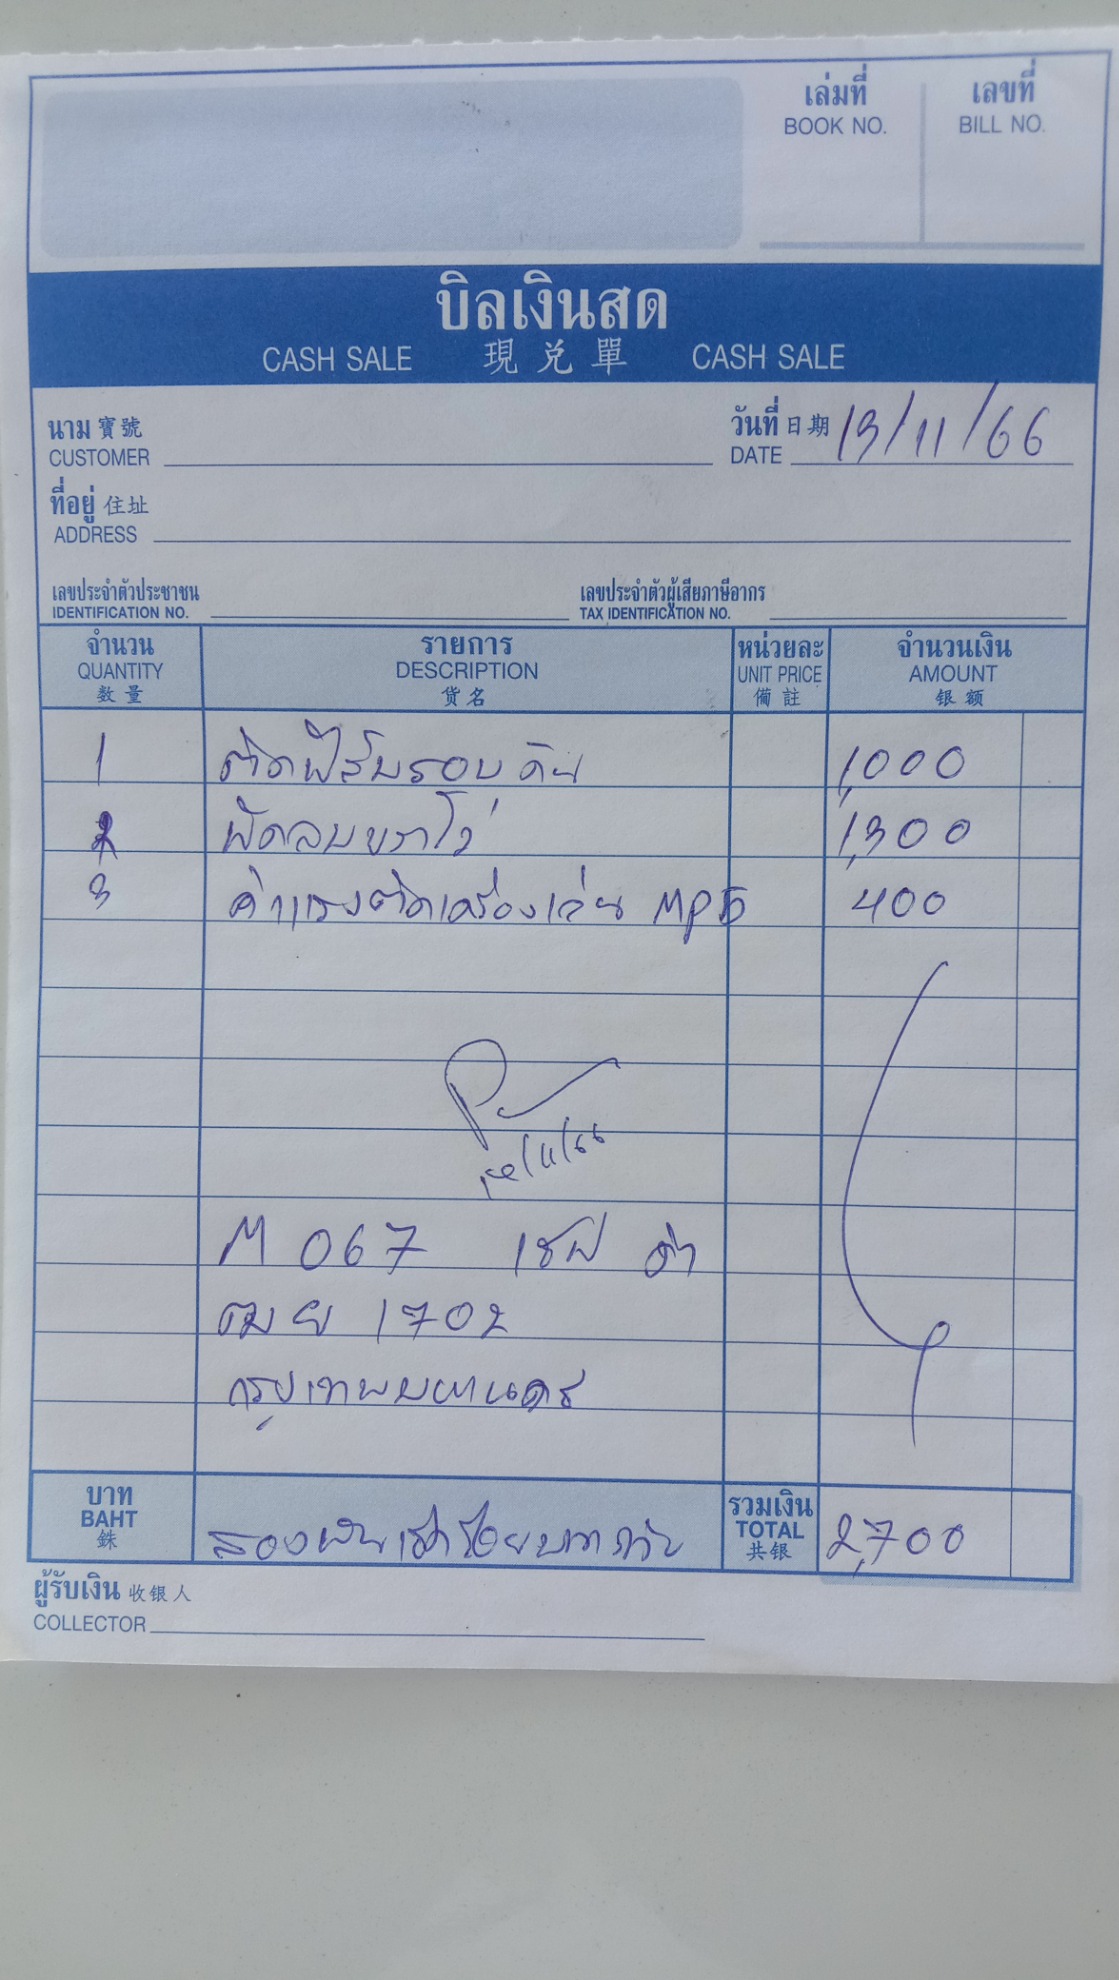 เล่มที่ เลขที่
BOOK NO. BILL NO.
บิลเงินสด
CASH SALE 現兑單 CASH SALE
นาม 寶號 วันที่ 日期 13/11/66
CUSTOMER DATE
ที่อยู่ 住址
ADDRESS
เลขประจำตัวประชาชน เลขประจำตัวผู้เสียภาษีอากร
IDENTIFICATION NO. TAX IDENTIFICATION NO.
จำนวน รายการ หน่วยละ จำนวนเงิน
QUANTITY DESCRIPTION UNIT PRICE AMOUNT
数量 货名 備註 银额
1 ติดฟิล์มรอบคัน 1,000
2 พัดลมบราโว่ 1,300
3 ค่าแรงติดเครื่องเล่น MP5 400
M 067 เชฟ ดำ
ฒย 1702
กรุงเทพมหานคร
บาท รวมเงิน
BAHT สองพันเจ็ดร้อยบาทถ้วน TOTAL 2,700
銖 共银
ผู้รับเงิน 收银人
COLLECTOR